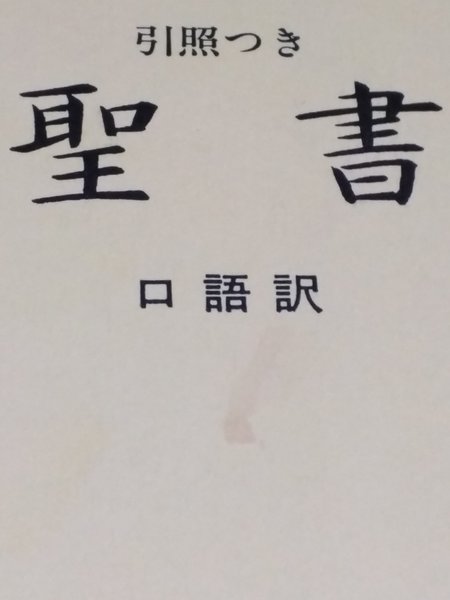 引照つき
聖書
口語訳